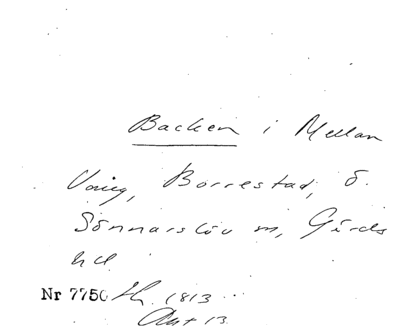 Backen i Mellan
Vång, Borrestad, Ö.
Sönnarslöv sn, Gärds
hd
Nr 7750 Lh. 1813
Akt 13.